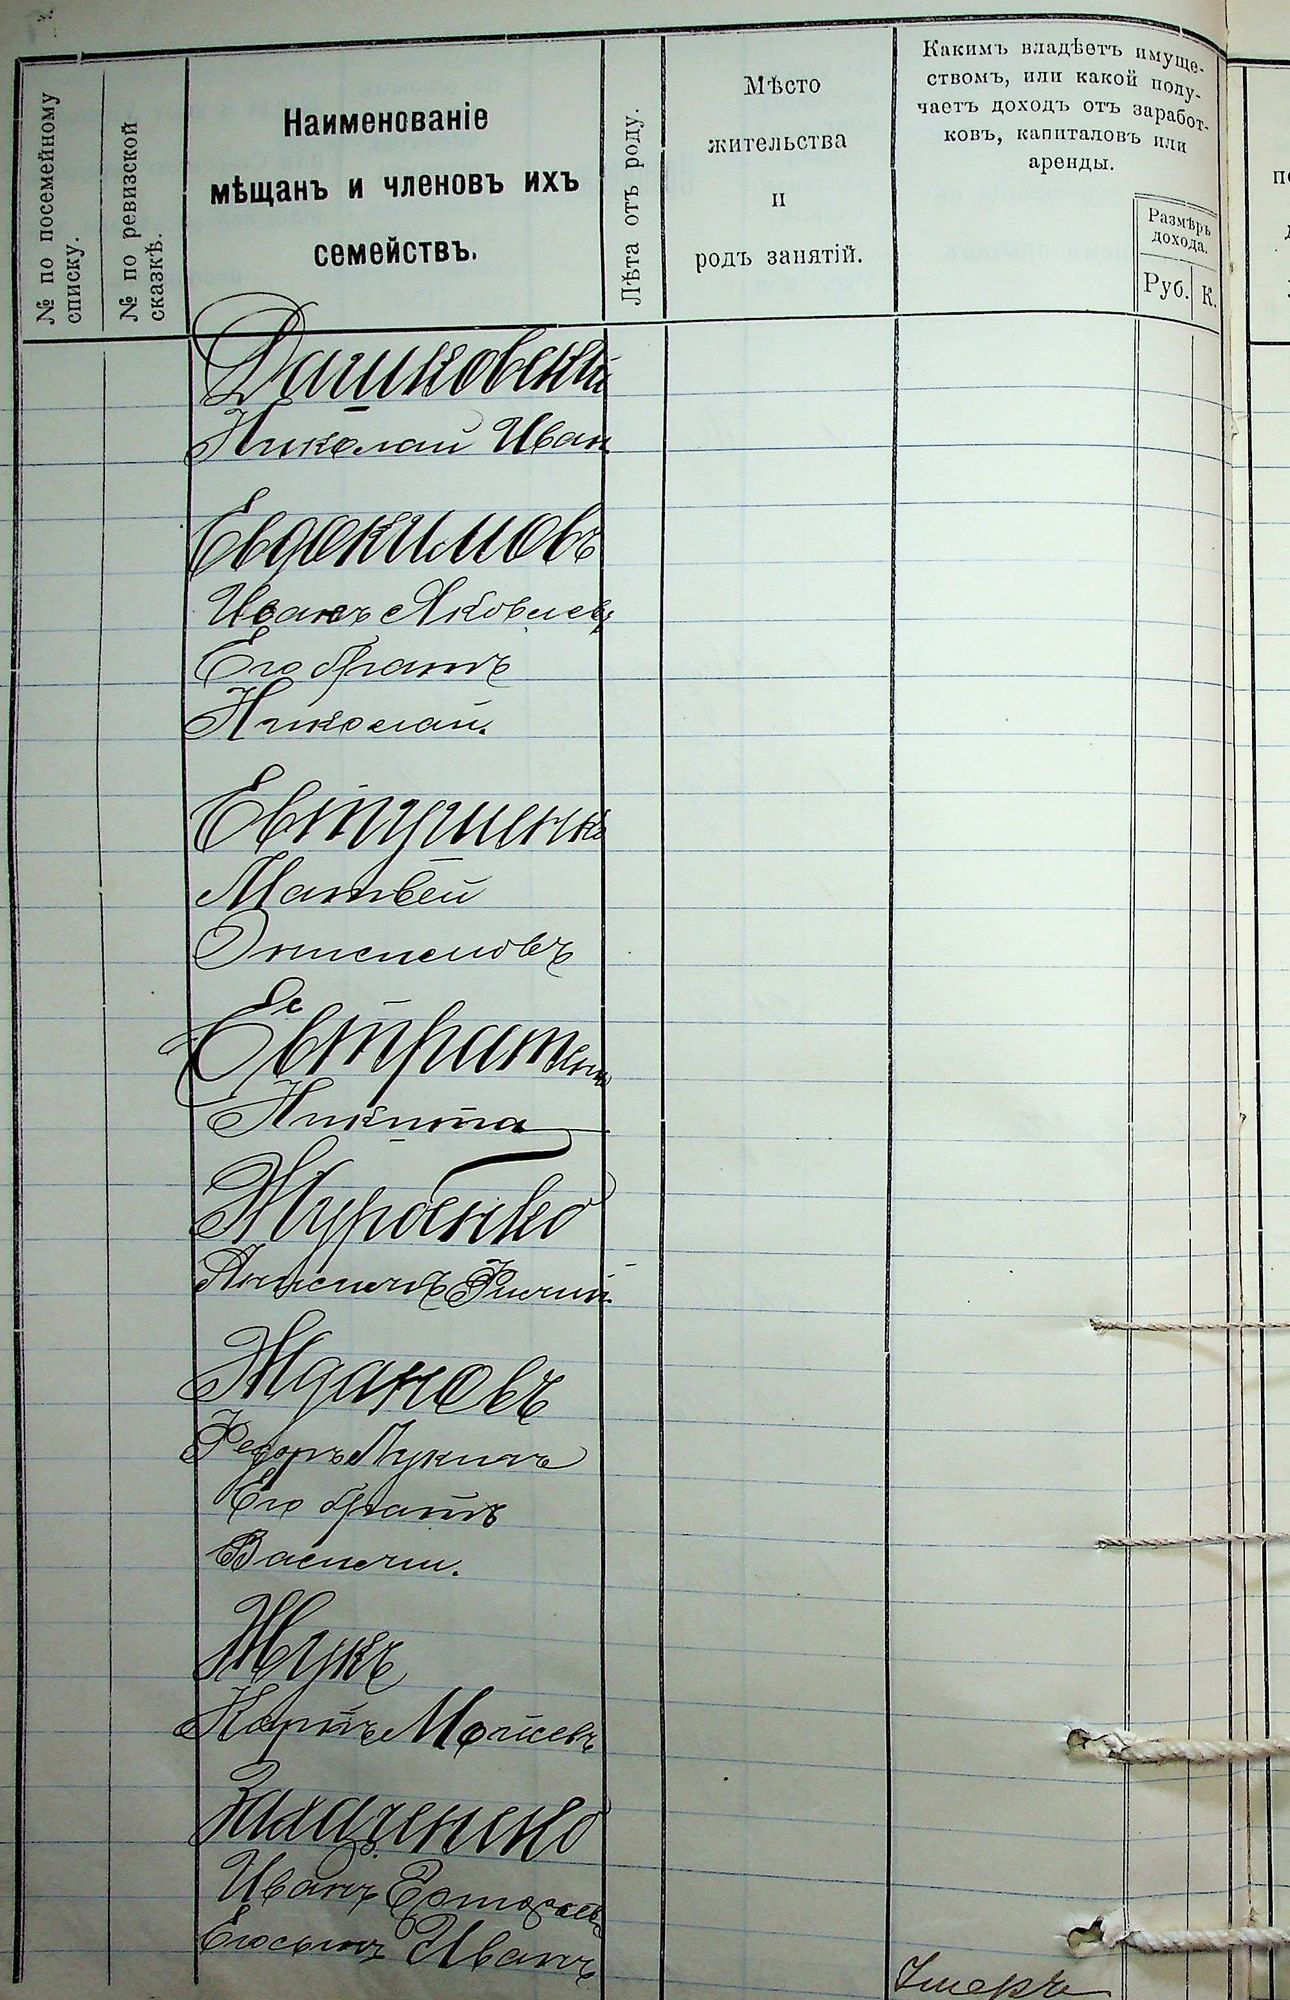 № по посемейному
списку.
№ по ревизской
сказкѣ.
Наименованіе
мѣщанъ и членовъ ихъ
семействъ.
Лѣта отъ роду.
Мѣсто
жительства
и
родъ занятій.
Какимъ владѣетъ имуще-
ствомъ, или какой полу-
чаетъ доходъ отъ заработ-
ковъ, капиталовъ или
аренды.
Размѣръ
дохода.
Руб.
К.
Дашковскій
Николай Иван
Евдокимовъ
Иванъ Яковлевъ
Его братъ
Николай.
Евтушенко
Матвѣй
Онисимовъ
Никита
Журбенко
Ждановъ
Федоръ Лукичъ
Его братъ
Василій.
Жукъ
Карпъ Мойсевъ
Захарченко
Иванъ
Его сынъ Иванъ
Умеръ